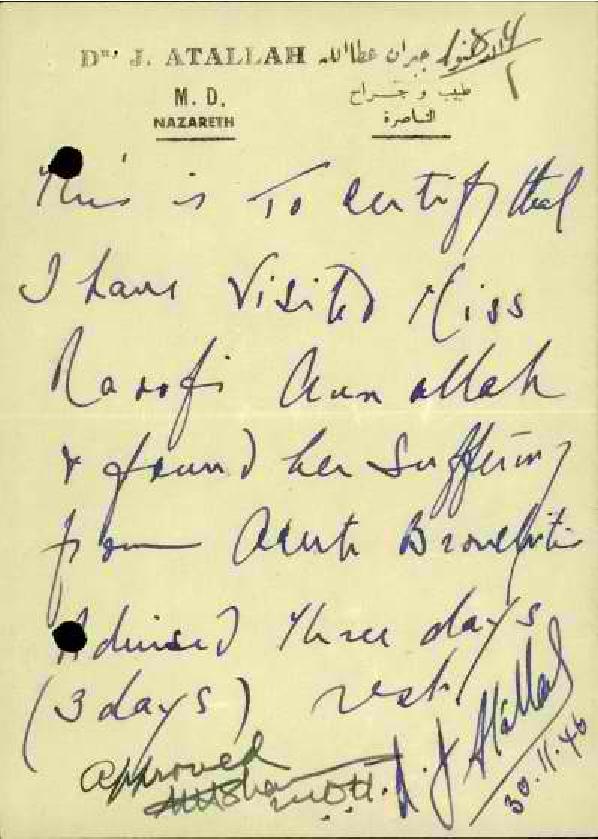 Dr. J. ATALLAH جبران عطاالله
M. D. طبيب و جراح
NAZARETH الناصرة
This is To certify that
I have visited Miss
Raoofi Aun allah
& found her suffering
from acute Bronchitis
Advised three days
(3 days) rest
Approved J. Atallah
M.O.H. 30.11.46